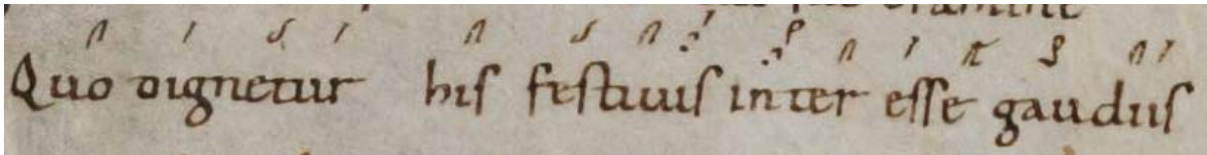 Quo dignetur his festiuis inter esse gaudiis